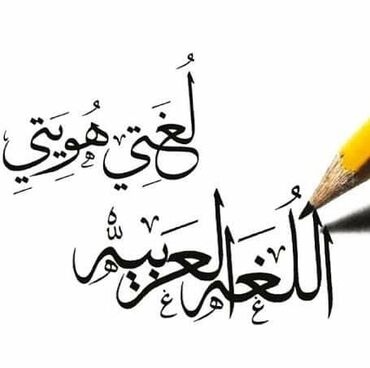 لُغَتِي هُوِيَتِي
اللُغَه العَرَبِيَه